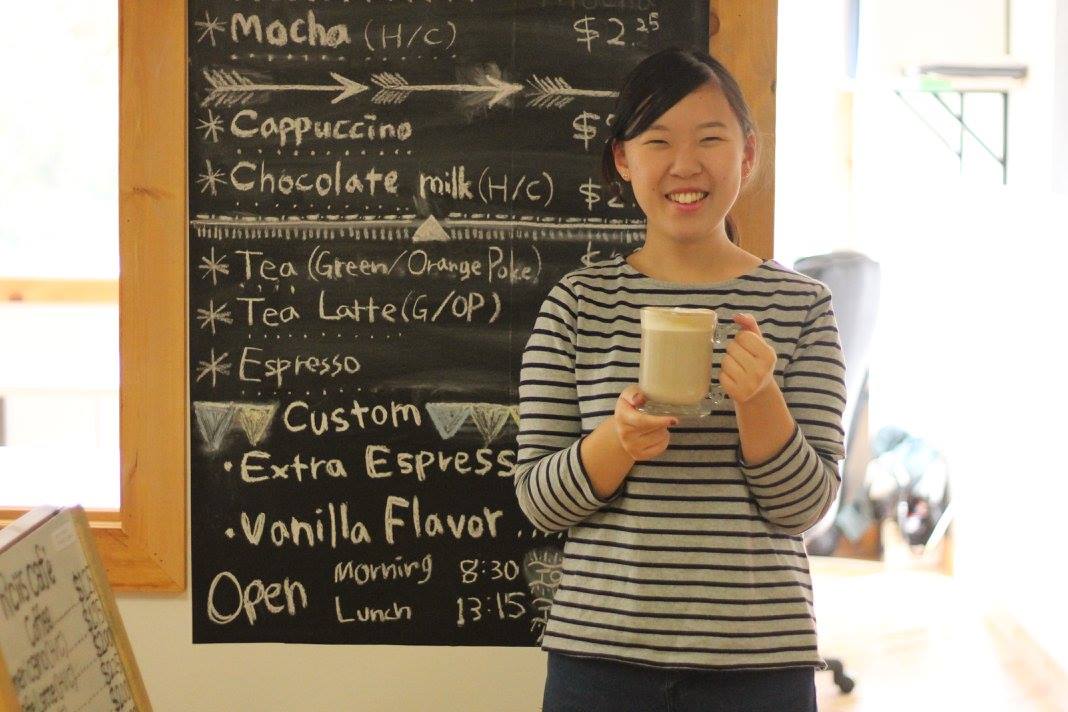 * Mocha (H/C) $2.25
* Cappuccino
* Chocolate milk (H/C) $2.
* Tea (Green/Orange Poke)
* Tea Latte (G/OP)
* Espresso
Custom
· Extra Espress
· Vanilla Flavor ....
Open Morning 8:30
Lunch 13:15
Cafe
Coffee